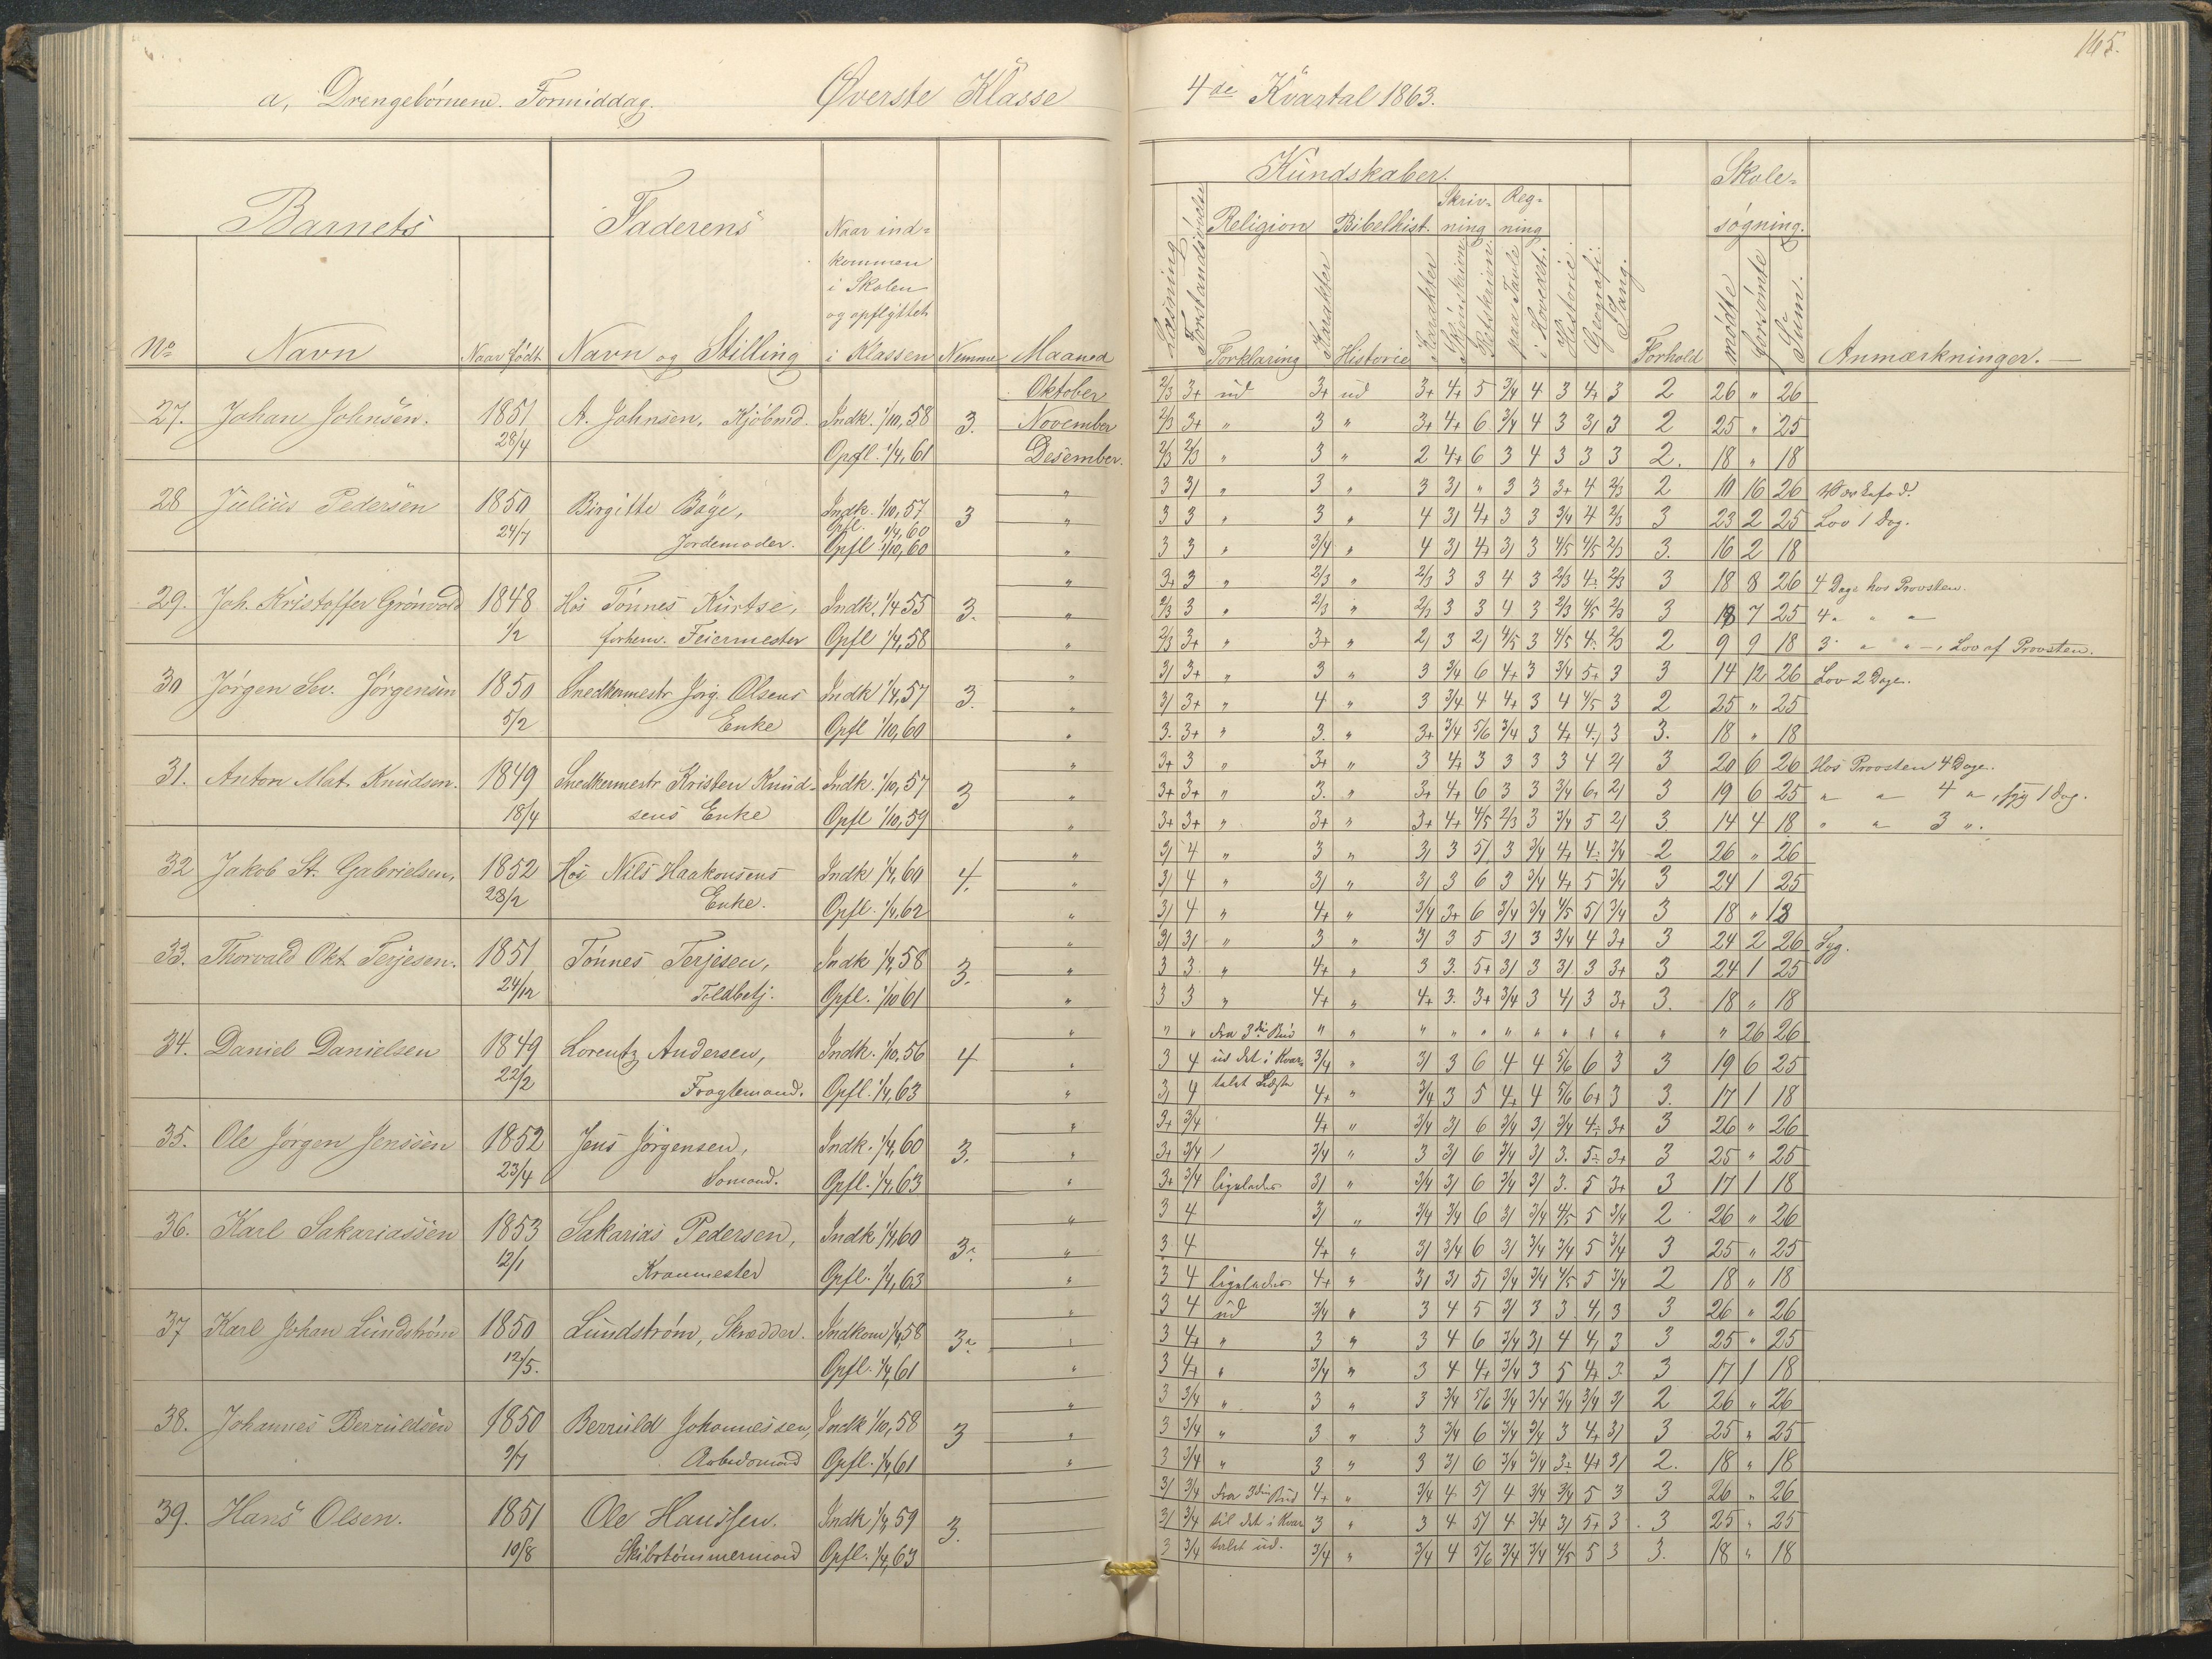 165.
a, Drengebørnene. Formiddag. Øverste Klasse 4de Kvartal 1863.
Barnets Faderens Naar ind= kommen i Skolen og opflyttet i Klassen Nemme Maaned
No Navn Naar født Navn og Stilling
Kundskaber. Skole= søgning.
Læsning Forstandsøvelse Religion Bibelhist. Skriv= ning Reg= ning
Forklaring Karakter Historie Karakter Skönskriven Retskriven paa Tavle i Hovedet. Historie. Geografi. Sang. Forhold mødte forsømte Sum. Anmærkninger.
27. Johan Johnsen. 1851 A. Johnsen, Kjøbmd. Indk. 1/10, 58 3. Oktober
28/4 Opfl. 1/4, 61 November
Desember.
2/3 3+ ud 3+ ud 3+ 4+ 5 3/4 4 3 4+ 3 2 26 " 26
2/3 3+ " 3 " 3+ 4+ 6 3/4 4 3 3/ 3 2 25 " 25
2/3 2/3 " 3 " 2 4+ 6 3 4 3 3 3 2. 18 " 18
28 Julius Pedersen 1850 Birgitte Bøge, Indk. 1/10, 57 3
24/7 Jordemoder. Opfl. 1/4, 60
Opfl 1/10, 60
3 3/ " 3 " 3 3/ " 3 3 3+ 4 2/3 2 10 16 26
3 3 " 3 " 4 3/ 4+ 3 3 3/4 4 2/3 3 23 2 25 Lov 1 Dag.
3 3 " 3/4 " 4 3/ 4+ 3/ 3 4/5 4/5 2/3 3. 16 2 18
29. Joh. Kristoffer Grönvold 1848 Hos Tönnes Kurtse, Indk. 1/4 55 3.
1/2 forhenv. Feiermester Opfl 1/4, 58
3+ 3 " 2/3 " 2/3 3 3 4 3 2/3 4÷ 2/3 3 18 8 26 4 Dage hos Provsten.
2/3 3 " 2/3 " 2/3 3 3 4 3 2/3 4/5 2/3 3 18 7 25 4 " " "
2/3 3+ " 3+ " 2/ 3 2/ 4/5 3 4/5 4÷ 2/3 2 9 9 18 3 " " ", Lov af Provsten.
30 Jörgen Sev. Jörgensen 1850 Snedkermestr Jörg. Olsens Indk 1/4, 57 3.
5/2 Enke Opfl 1/10, 60
3/ 3+ " 3 " 3 3/4 6 4+ 3 3/4 5+ 3 3 14 12 26 Lov 2 Dage.
3/ 3+ " 4 " 3 3/4 4 4+ 3 4 4/5 3 2 25 " 25
3. 3+ " 3. " 3+ 3/4 5/6 3/4 3 4+ 4/ 3 3. 18 " 18
31. Anton Mat. Knudsen. 1849 Snedkermestr Kristen Knud= Indk. 1/10, 57 3
18/4 sens Enke Opfl 1/10, 59
3+ 3 " 3+ " 3 4+ 3 3 3 3 4 2/ 3 20 6 26 Hos Provsten 4 Dage.
3+ 3+ " 3. " 3+ 4+ 6 3 3 3/4 6+ 2/ 3 19 6 25 " " 4 ", syg 1 Dag.
3+ 3+ " 3+ " 3+ 4+ 4/5 2/3 3 3/4 5 2/ 3 14 4 18 " " 3 ".
32 Jakob St. Gabrielsen, 1852 Hos Nils Haakonsens Indk 1/4, 60 4.
28/2 Enke. Opfl. 1/4, 62
3/ 4 " 3 " 3/ 3 5/ 3 3/4 4+ 4÷ 3/4 2 26 " 26
3/ 4 " 3/ " 3/ 3 6 3 3/4 4+ 5 3/4 3 24 1 25
3/ 4 " 4+ " 3/4 3+ 6 3/4 3/4 4/5 5/ 3/4 3 18 " 18
33. Thorvald Okt. Terjesen. 1851 Tönnes Terjesen, Indk 1/4, 58 3.
24/12 Toldbetj. Opfl. 1/10 61
3/ 3/ " 3 " 3/ 3 5 3/ 3 3/4 4 3+ 3 24 2 26 Syg.
3 3. " 4+ " 3 3. 5+ 3/ 3 3/ 3 3+ 3 24 1 25
3 3 " 4+ " 4+ 3. 3+ 3/4 3 4/ 3 3+ 3. 18 " 18
34. Daniel Danielsen 1849 Lorentz Andersen, Indk. 1/10, 56 4
22/2 Fragtemand. Opfl. 1/4, 63
" " Fra 3die Bud " " " " " " " " " " " " 26 26
3 4 ud det i Kvar= 3/4 " 3/ 3 6 4 4 5/6 6 3 3 19 6 25
3/ 4 talet Læste 4+ " 3/4 3 5 4+ 4 5/6 6+ 3 3. 17 1 18
35. Ole Jörgen Jenssen 1852 Jens Jörgensen, Indk. 1/4, 60 3.
23/4 Sömand. Opfl. 1/4, 63
3+ 3/4 4+ " 3/4 3/ 6 3/4 3/ 3/4 4÷ 3+ 3 26 " 26
3+ 3/4 / 3/4 " 3 3/ 6 3/4 3/ 3. 5÷ 3+ 3 25 " 25
3+ 3/4 ligeledes 3/ " 3/4 3/ 6 3/4 3/ 3. 5 3+ 3 17 1 18
36. Karl Sakariassen 1853 Sakarias Pedersen, Indk 1/4, 60 3.
12/1 Kranmester Opfl. 1/4, 63
3 4 3/ " 3/4 3/4 6 3/ 3/4 4/5 5 3/4 2 26 " 26
3 4 4+ " 3/ 3/4 6 3/ 3/4 3/4 5 3/4 3 25 " 25
3 4 ligeledes 4+ " 3/ 3/ 5/ 3/4 3/4 4/5 5 3/4 2 18 " 18
37 Karl Johan Lundström 1850 Lundström, Skrædder. Indkom 1/4, 58 3.
12/5. Opfl. 1/4, 61
3 4 ud 3/4 " 3 4 5 3/ 3 3 4/ 3 3 26 " 26
3 4+ " 3 " 3 4 6 3/4 3/ 4 4/ 3 3 25 " 25
3 4+ " 3/4 " 3 4 4+ 3/4 3 5 4+ 3 3 17 1 18
38. Johannes Berruldsen 1850 Berruld Johannessen, Indk 1/10, 58 3
9/7 Arbedsmand Opfl. 1/4, 61
3 3/4 " 3 " 3 3/4 5/6 3/4 3/4 3/4 3/4 3/ 2 26 " 26
3 3/4 " 3 " 3 3/4 6 3/4 3/4 3 4+ 3/ 3 25 " 25
3 3/4 " 3 " 3 3/ 6 3/4 3/4 3÷ 4+ 3/ 2. 18 " 18
39. Hans Olsen. 1851 Ole Hanssen. Indk 1/4, 59 3.
10/8 Skibstømmermand Opfl. 1/4, 63
3/ 3/4 Fra 3die Bud 4+ " 3/4 4 5/ 4 3/4 3/4 5 3 3 26 " 26
3/ 3/4 til det i Kvar 3 " 3 4 5/ 4 3/4 3/ 5+ 3 3 25 " 25
3 3/4 talet ud. 3/4 " 3/4 4 5/6 3/4 3/4 4/5 5 3 3. 18 " 18